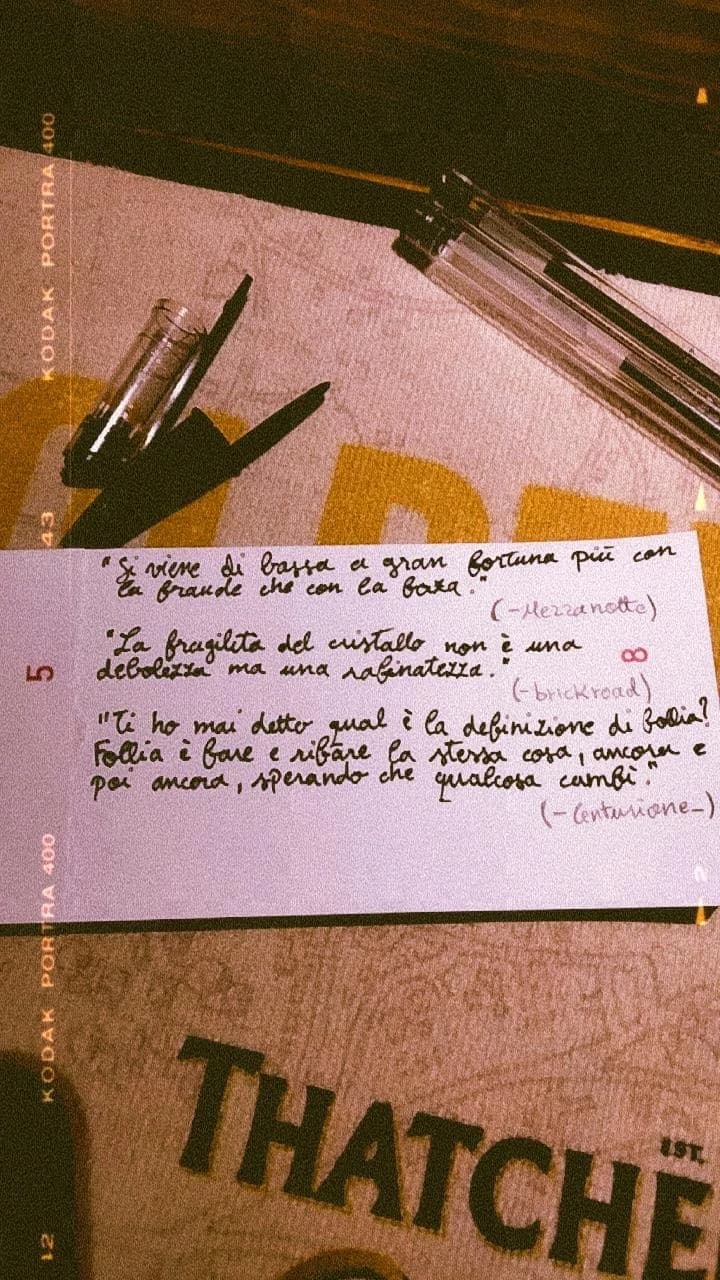 KODAK PORTRA 400
43
"Si viene di bassa a gran fortuna più con
la fraude che con la forza."
(-Mezzanotte)
"La fragilità del cristallo non è una
debolezza ma una rafinatezza."
(-brickroad)
"Ti ho mai detto qual è la definizione di follia?
Follia è fare e rifare la stessa cosa, ancora e
poi ancora, sperando che qualcosa cambi."
(-Centurione_)
5
8
2
KODAK PORTRA 400
EST.
THATCHE
12